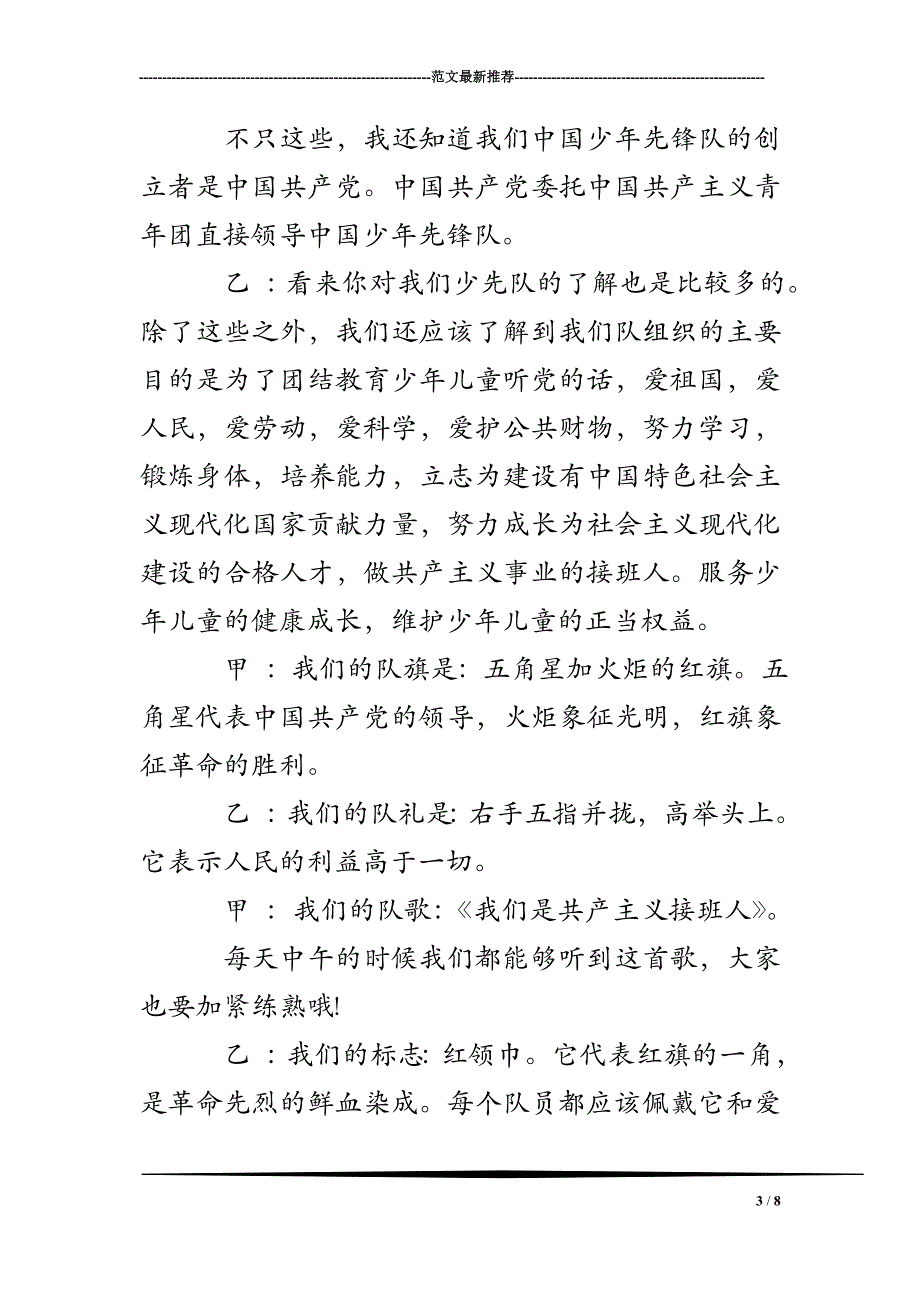 ---------------------------------------------------------------范文最新推荐------------------------------------------------------
不只这些，我还知道我们中国少年先锋队的创
立者是中国共产党。中国共产党委托中国共产主义青
年团直接领导中国少年先锋队。
乙 ：看来你对我们少先队的了解也是比较多的。
除了这些之外，我们还应该了解到我们队组织的主要
目的是为了团结教育少年儿童听党的话，爱祖国，爱
人民，爱劳动，爱科学，爱护公共财物，努力学习，
锻炼身体，培养能力，立志为建设有中国特色社会主
义现代化国家贡献力量，努力成长为社会主义现代化
建设的合格人才，做共产主义事业的接班人。服务少
年儿童的健康成长，维护少年儿童的正当权益。
甲 ： 我们的队旗是：五角星加火炬的红旗。五
角星代表中国共产党的领导，火炬象征光明，红旗象
征革命的胜利。
乙 ：我们的队礼是：右手五指并拢，高举头上。
它表示人民的利益高于一切。
甲 ： 我们的队歌：《我们是共产主义接班人》。
每天中午的时候我们都能够听到这首歌，大家
也要加紧练熟哦!
乙 ：我们的标志：红领巾。它代表红旗的一角，
是革命先烈的鲜血染成。每个队员都应该佩戴它和爱
3 / 8